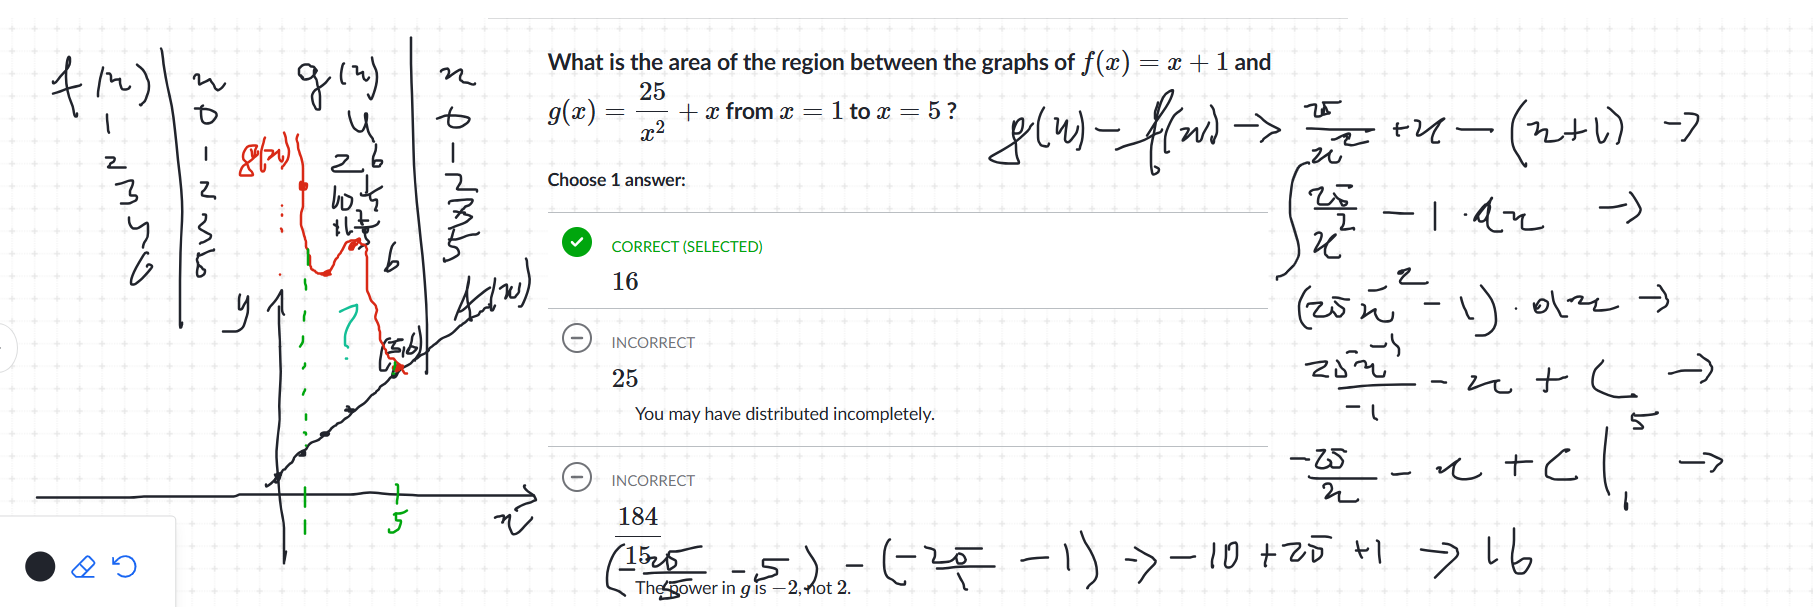 What is the area of the region between the graphs of f(x) = x + 1 and
g(x) = 25/x² + x from x = 1 to x = 5 ?
Choose 1 answer:
CORRECT (SELECTED)
16
INCORRECT
25
You may have distributed incompletely.
INCORRECT
184/15
The power in g is −2, not 2.
f(x) | x
1 0
2 1
3 2
4 3
6 5
g(x) | x
0
26 1
2
3
6 5
g(x)
y
?
(5,6)
f(x)
1
5
x
g(x) - f(x) → 25/x² + x - (x+1) →
∫ 25/x² - 1 · dx →
(25x⁻² - 1) · dx →
25x⁻¹/-1 - x + C →
-25/x - x + C |₁⁵ →
(-25/5 - 5) - (-25/1 - 1) → -10 + 25 + 1 → 16